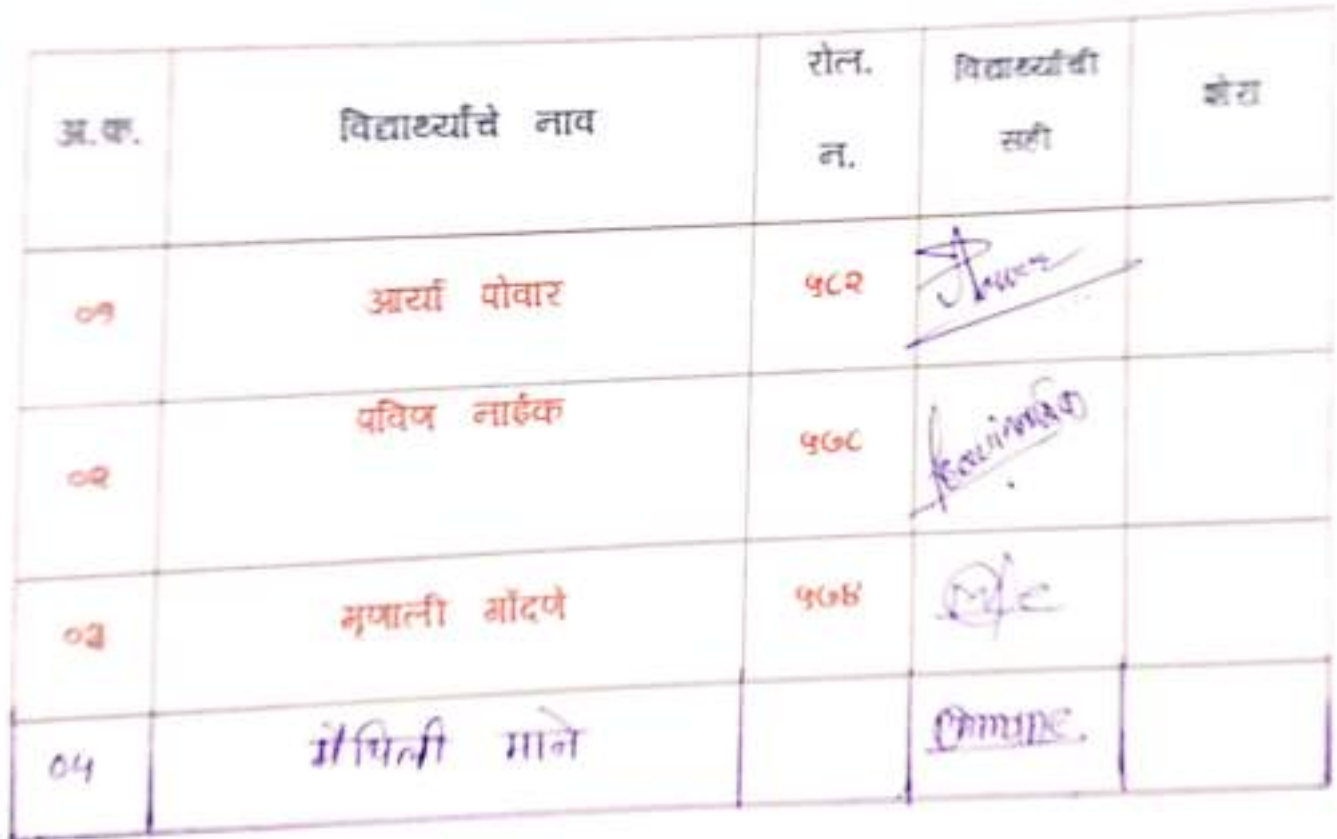 अ.क्र. विद्यार्थ्यांचे नाव रोल. न. विद्यार्थ्यांची सही शेरा
०१ आर्या पोवार ५८२
०२ पविण नाईक ५७८
०३ मृणाली गोंदणे ५७४
०५ मैथिली माने